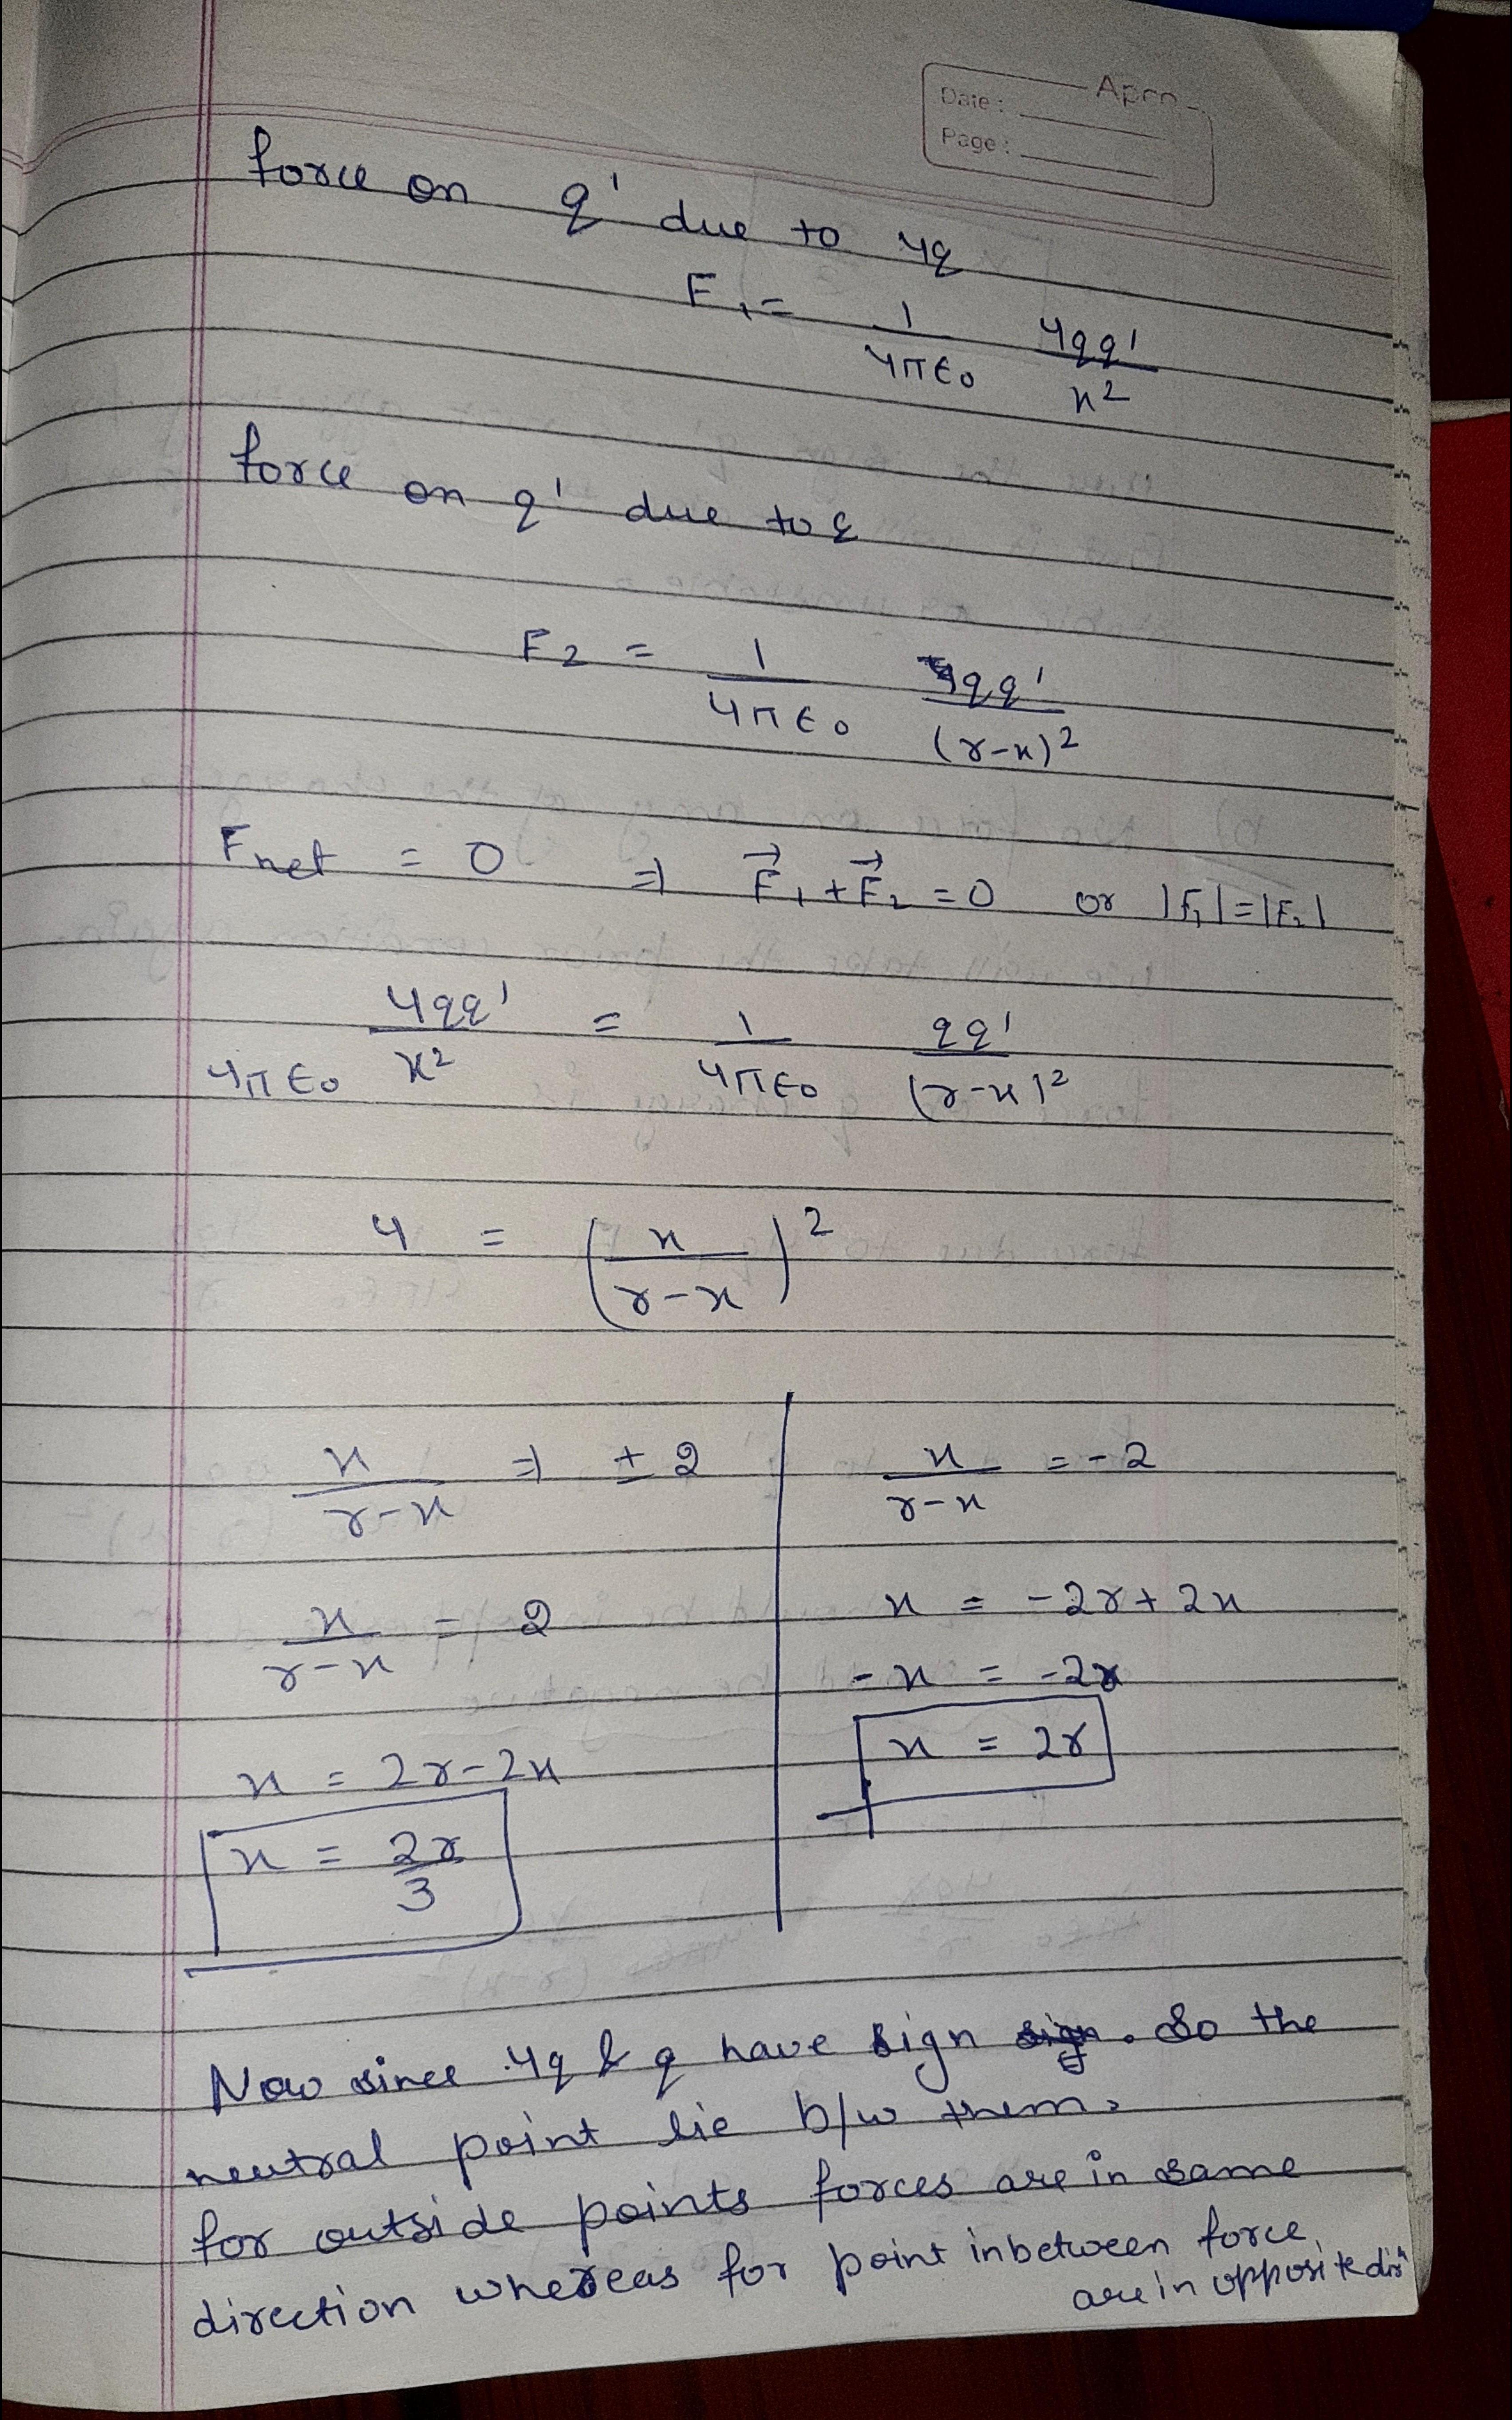 Date :
Page :
force on q' due to 4q
F₁ = 1/4πε₀ 4qq'/x²
force on q' due to q
F₂ = 1/4πε₀ qq'/(r-x)²
Fnet = 0 ⇒ F⃗₁ + F⃗₂ = 0 or |F₁| = |F₂|
4πε₀ 4qq'/x² = 1/4πε₀ qq'/(r-x)²
4 = (x/r-x)²
x/r-x ⇒ ± 2
x/r-x = 2
x = 2r-2x
x = 2r/3
x/r-x = -2
x = -2r+2x
-x = -2r
x = 2r
Now since 4q & q have sign. So the
neutral point lie b/w them.
for outside points forces are in same
direction whereas for point inbetween force
are in opposite dirⁿ